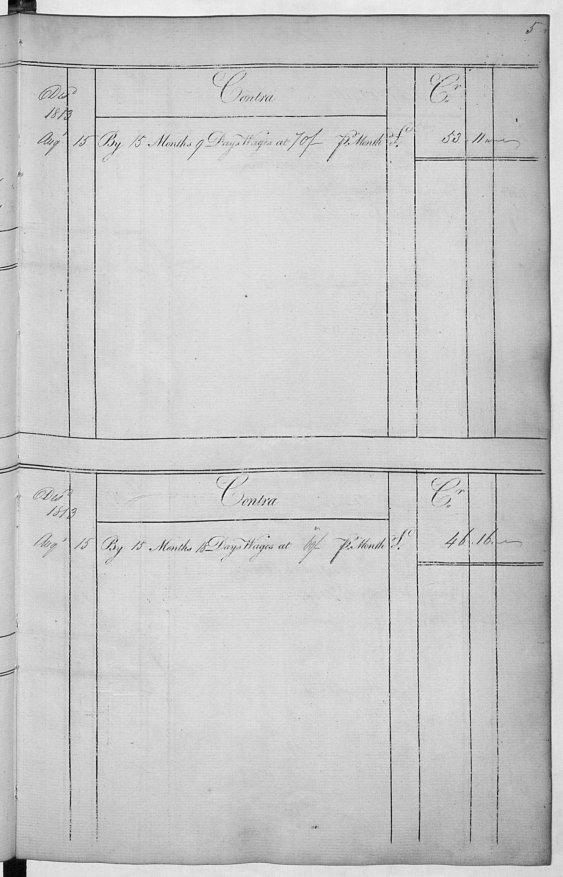 5
Contra
Cr
1813
Augt 15 By 15 Months 9 Days Wages at 70/ Pr Month £ 53 11 "
Contra
Cr
1813
Augt 15 By 15 Months 18 Days Wages at 60/ Pr Month £ 46 16 "